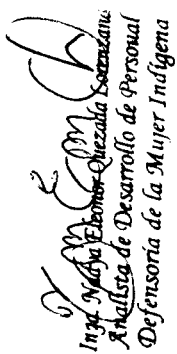 Inga. Nadya Eleonor Quezada Lorenzana
Analista de Desarrollo de Personal
Defensoría de la Mujer Indígena